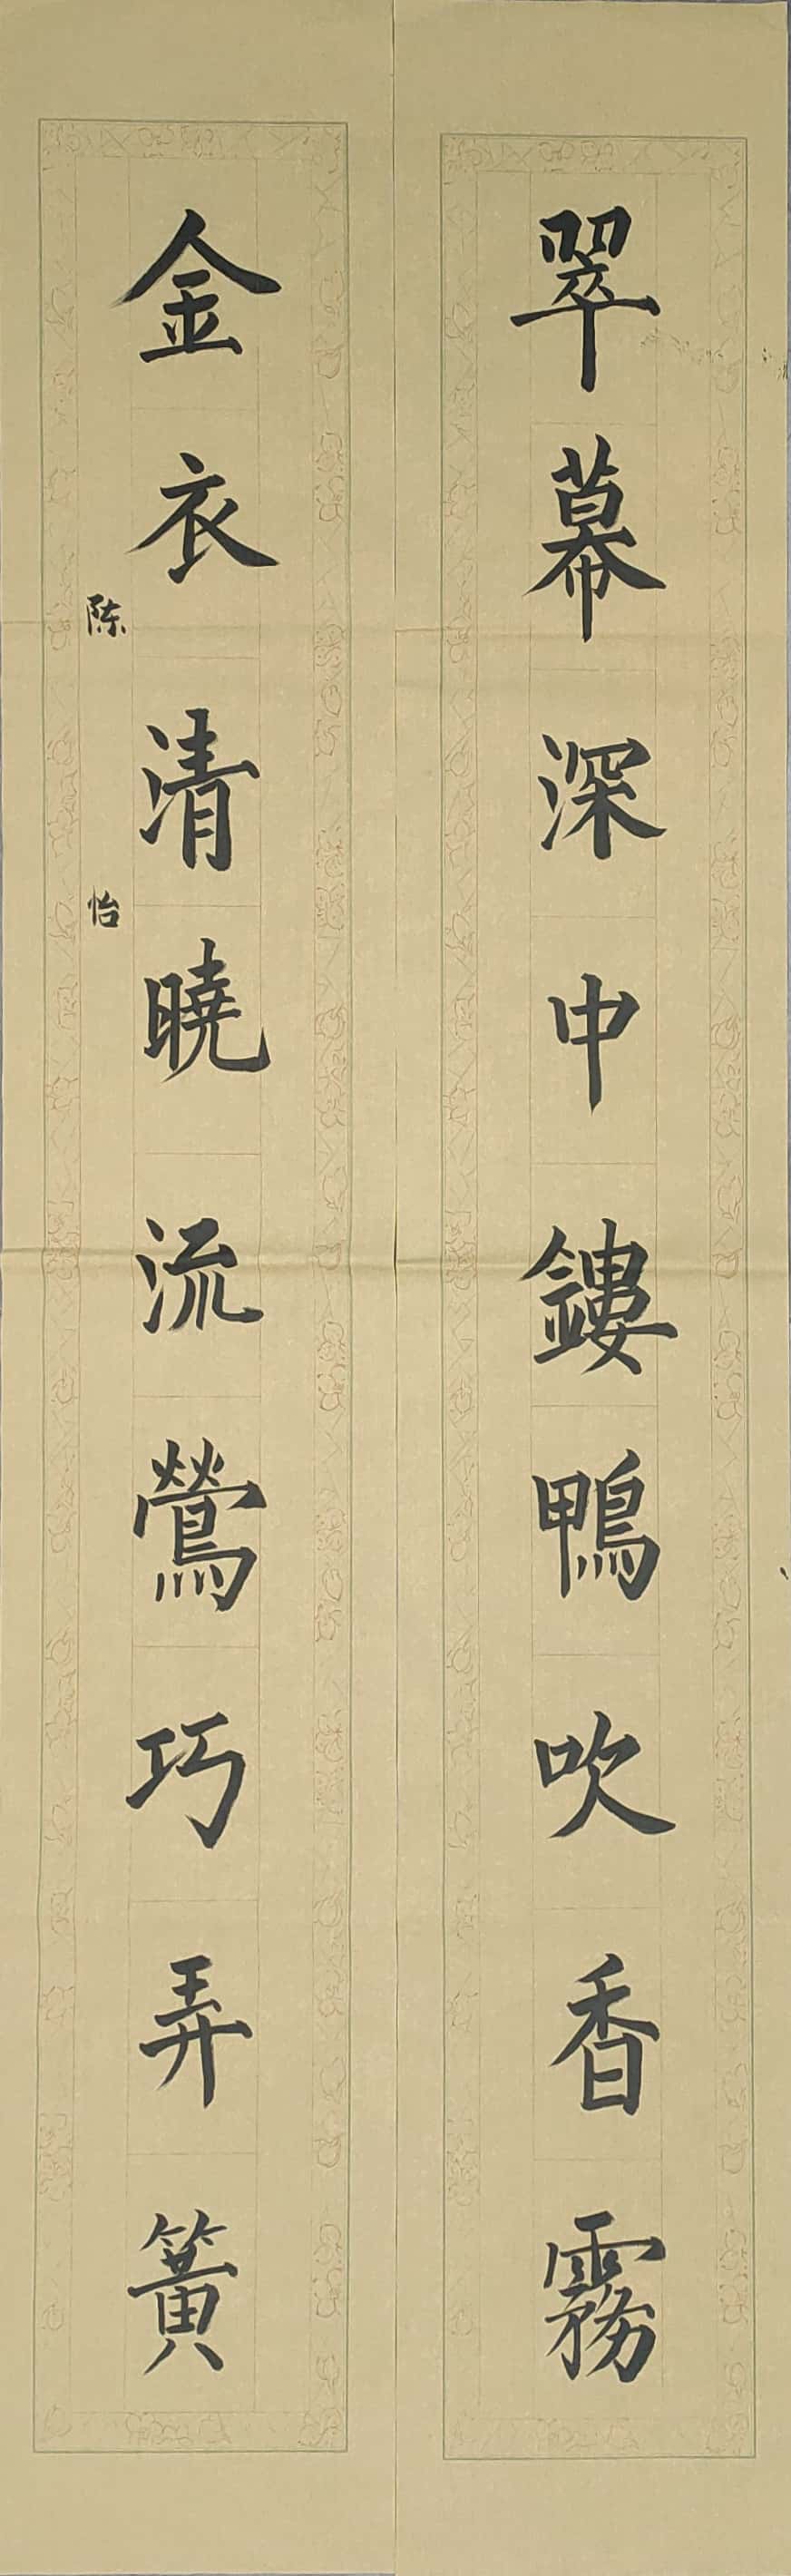 翠幕深中鏤鴨吹香霧
金衣清曉流鶯巧弄簧
陈怡